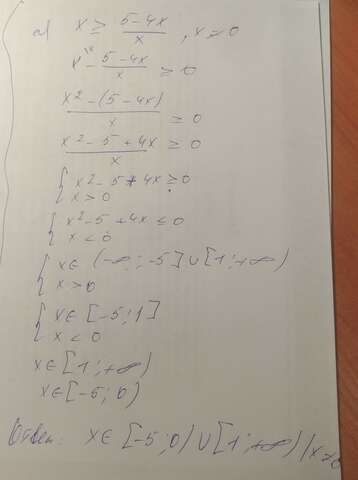 а) x ≥ (5-4x)/x , x ≠ 0
x - (5-4x)/x ≥ 0
(x² - (5-4x))/x ≥ 0
(x² - 5 + 4x)/x ≥ 0
{ x² - 5 + 4x ≥ 0
x > 0
{ x² - 5 + 4x ≤ 0
x < 0
{ x ∈ (-∞; -5] ∪ [1; +∞)
x > 0
{ x ∈ [-5; 1]
x < 0
x ∈ [1; +∞)
x ∈ [-5; 0)
Ответ: x ∈ [-5; 0) ∪ [1; +∞) / x ≠ 0